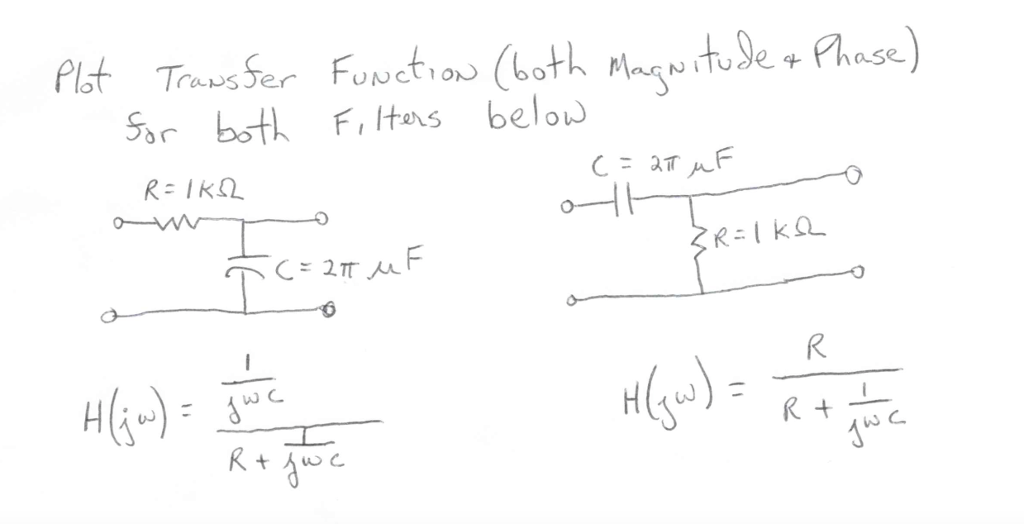 Plot Transfer Function (both Magnitude & Phase)
for both Filters below
R = 1KΩ
C = 2π μF
H(jω) = (1/(jωC)) / (R + 1/(jωC))
C = 2π μF
R = 1 KΩ
H(jω) = R / (R + 1/(jωC))